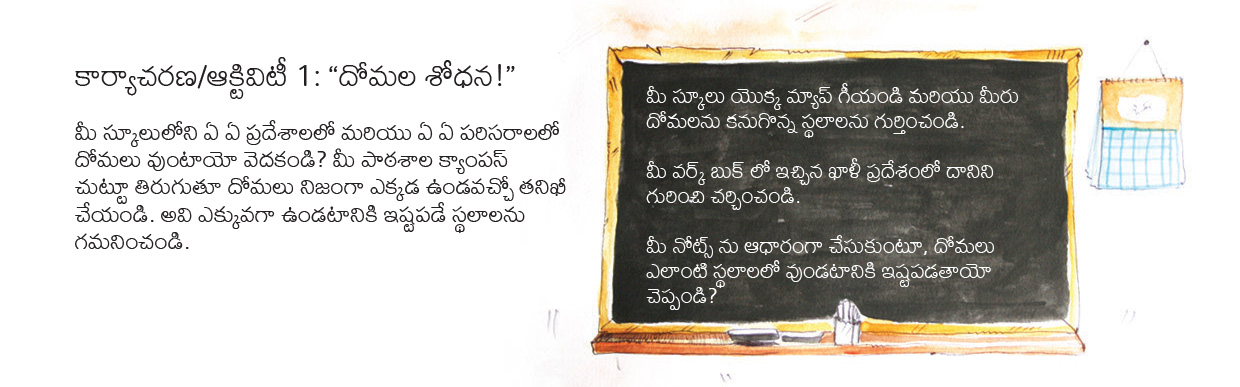 కార్యాచరణ/ఆక్టివిటీ 1: “దోమల శోధన!”
మీ స్కూలులోని ఏ ఏ ప్రదేశాలలో మరియు ఏ ఏ పరిసరాలలో
దోమలు వుంటాయో వెదకండి? మీ పాఠశాల క్యాంపస్
చుట్టూ తిరుగుతూ దోమలు నిజంగా ఎక్కడ ఉండవచ్చో తనిఖీ
చేయండి. అవి ఎక్కువగా ఉండటానికి ఇష్టపడే స్థలాలను
గమనించండి.
మీ స్కూలు యొక్క మ్యాప్ గీయండి మరియు మీరు
దోమలను కనుగొన్న స్థలాలను గుర్తించండి.
మీ వర్క్ బుక్ లో ఇచ్చిన ఖాళీ ప్రదేశంలో దానిని
గురించి చర్చించండి.
మీ నోట్స్ ను ఆధారంగా చేసుకుంటూ, దోమలు
ఎలాంటి స్థలాలలో వుండటానికి ఇష్టపడతాయో
చెప్పండి?